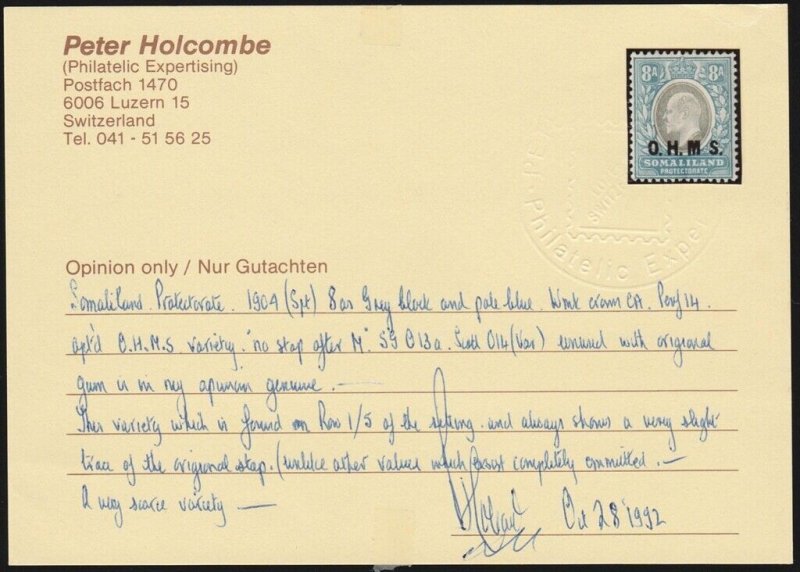 Peter Holcombe
(Philatelic Expertising)
Postfach 1470
6006 Luzern 15
Switzerland
Tel. 041 - 51 56 25
8A 8A
O.H.M S.
SOMALILAND
PROTECTORATE
Philatelic Exper
Opinion only / Nur Gutachten
Somaliland Protectorate. 1904 (Spt) 8as Grey black and pale blue. Wmk crown CA. Perf 14
opt'd O.H.M.S variety "no stop after M" SG O13a. Scott O14 (Var) unused with origional
gum is in my opinion genuine. —
This variety which is found on Row 1/5 of the setting. and always shows a very slight
trace of the origional stop. (unlike other values which exist completely ommitted. —
A very scarce variety —
Oct 28 1992